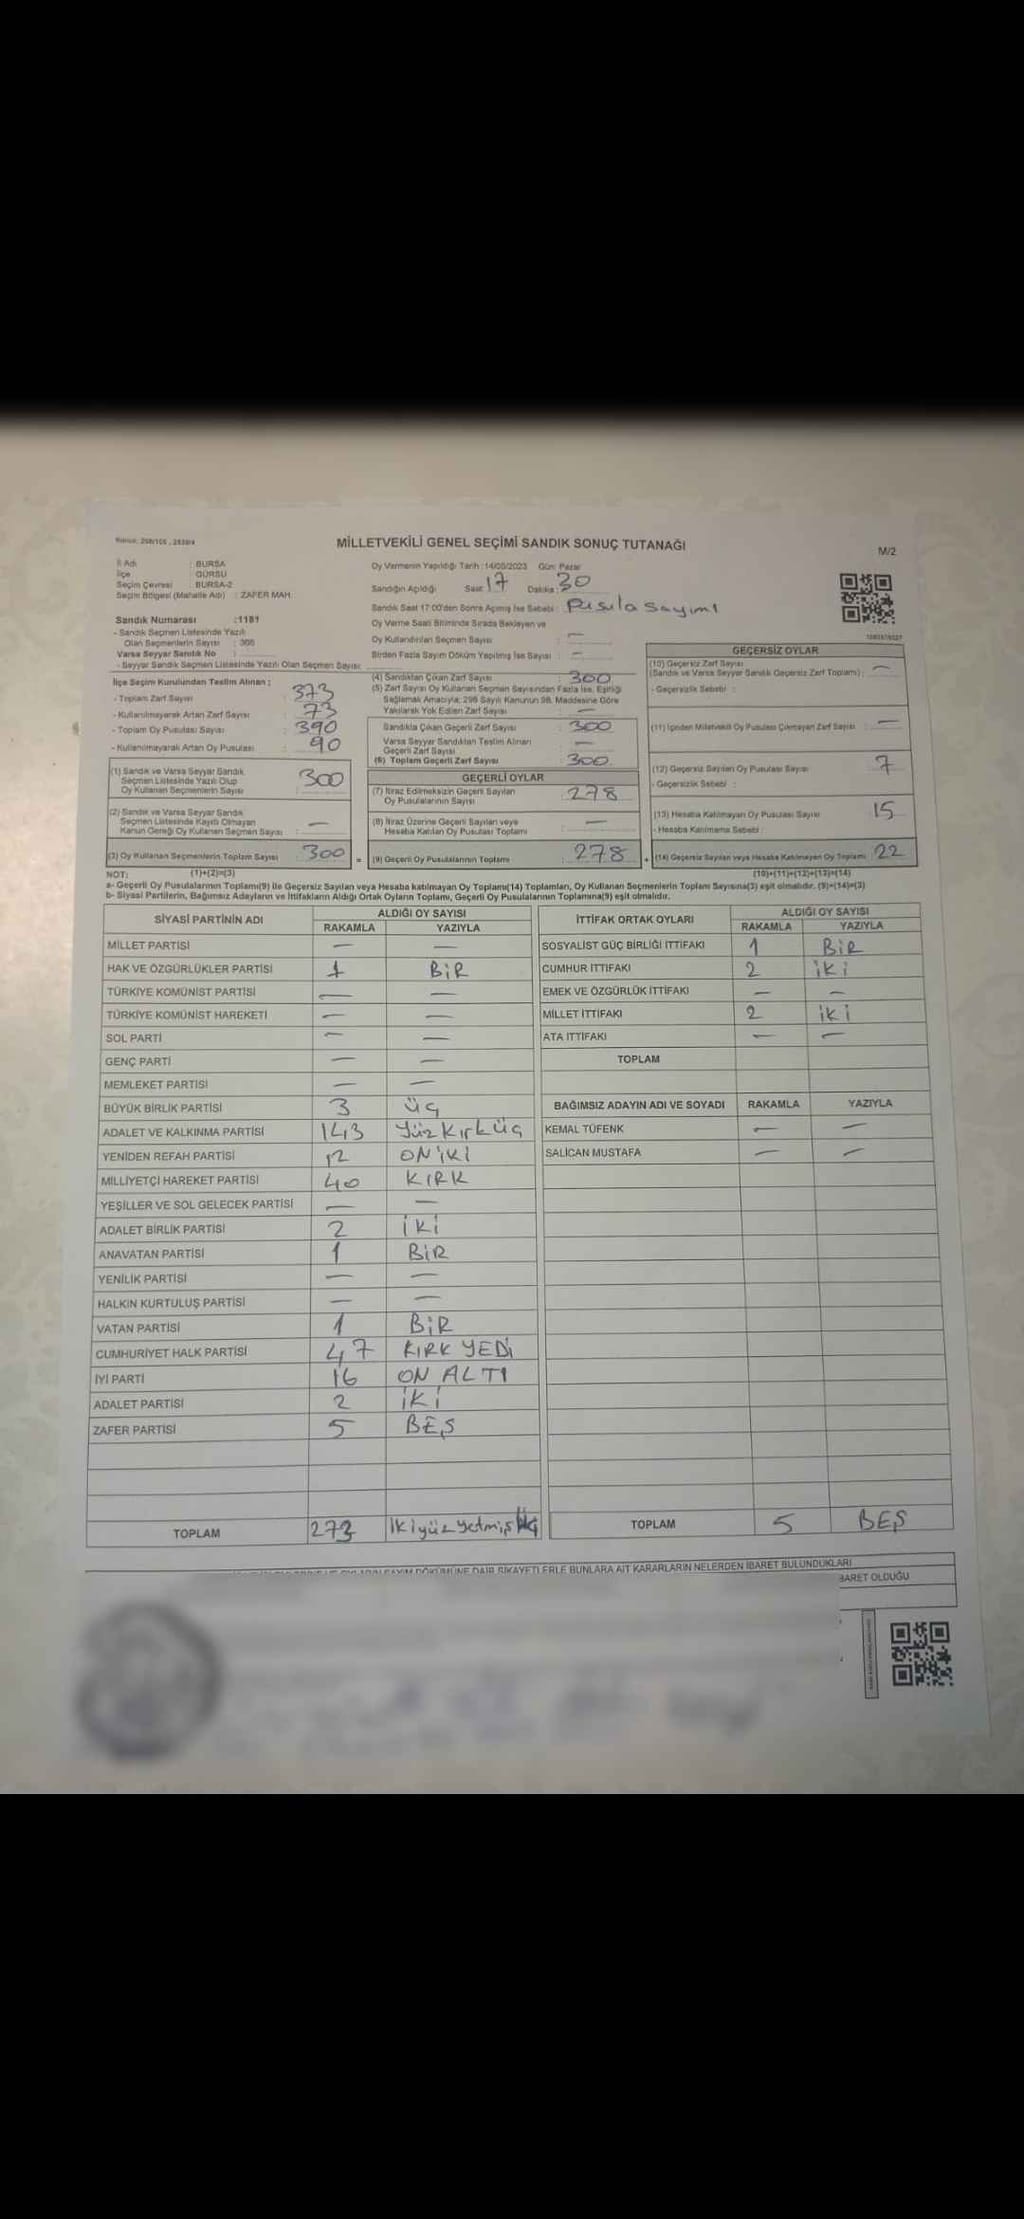 MİLLETVEKİLİ GENEL SEÇİMİ SANDIK SONUÇ TUTANAĞI
M/2
İl Adı : BURSA
İlçe : GÜRSU
Seçim Çevresi : BURSA-2
Seçim Bölgesi (Mahalle Adı) : ZAFER MAH.
Oy Vermenin Yapıldığı Tarih : 14/05/2023 Gün: Pazar
Sandığın Açıldığı Saat : 17 Dakika : 30
Sandık Saat 17:00'den Sonra Açılmış İse Sebebi : Pusula sayımı
Oy Verme Saati Bitiminde Sırada Bekleyen ve
Oy Kullandırılan Seçmen Sayısı : —
Birden Fazla Sayım Döküm Yapılmış İse Sayısı : —
Sandık Numarası :1181
- Sandık Seçmen Listesinde Yazılı
Olan Seçmenlerin Sayısı :
Varsa Seyyar Sandık No :
- Seyyar Sandık Seçmen Listesinde Yazılı Olan Seçmen Sayısı:
İlçe Seçim Kurulundan Teslim Alınan ;
- Toplam Zarf Sayısı : 373
- Kullanılmayarak Artan Zarf Sayısı : 73
- Toplam Oy Pusulası Sayısı : 390
- Kullanılmayarak Artan Oy Pusulası : 90
(1) Sandık ve Varsa Seyyar Sandık
Seçmen Listesinde Yazılı Olup
Oy Kullanan Seçmenlerin Sayısı : 300
(2) Sandık ve Varsa Seyyar Sandık
Seçmen Listesinde Kayıtlı Olmayan
Kanun Gereği Oy Kullanan Seçmen Sayısı : —
(3) Oy Kullanan Seçmenlerin Toplam Sayısı : 300
(4) Sandıktan Çıkan Zarf Sayısı : 300
(5) Zarf Sayısı Oy Kullanan Seçmen Sayısından Fazla İse, Eşitliği
Sağlamak Amacıyla; 298 Sayılı Kanunun 98. Maddesine Göre
Yakılarak Yok Edilen Zarf Sayısı : —
Sandıkta Çıkan Geçerli Zarf Sayısı : 300
Varsa Seyyar Sandıktan Teslim Alınan
Geçerli Zarf Sayısı : —
(6) Toplam Geçerli Zarf Sayısı : 300
GEÇERLİ OYLAR
(7) İtiraz Edilmeksizin Geçerli Sayılan
Oy Pusulalarının Sayısı : 278
(8) İtiraz Üzerine Geçerli Sayılan veya
Hesaba Katılan Oy Pusulası Toplamı : —
= (9) Geçerli Oy Pusulalarının Toplamı : 278
GEÇERSİZ OYLAR
(10) Geçersiz Zarf Sayısı
(Sandık ve Varsa Seyyar Sandık Geçersiz Zarf Toplamı) : —
- Geçersizlik Sebebi :
(11) İçinden Milletvekili Oy Pusulası Çıkmayan Zarf Sayısı : —
(12) Geçersiz Sayılan Oy Pusulası Sayısı : 7
- Geçersizlik Sebebi :
(13) Hesaba Katılmayan Oy Pusulası Sayısı : 15
- Hesaba Katılmama Sebebi :
+ (14) Geçersiz Sayılan veya Hesaba Katılmayan Oy Toplamı : 22
NOT: (1)+(2)=(3) (10)+(11)+(12)+(13)=(14)
a- Geçerli Oy Pusulalarının Toplamı(9) ile Geçersiz Sayılan veya Hesaba katılmayan Oy Toplamı(14) Toplamları, Oy Kullanan Seçmenlerin Toplam Sayısına(3) eşit olmalıdır. (9)+(14)=(3)
b- Siyasi Partilerin, Bağımsız Adayların ve İttifakların Aldığı Ortak Oyların Toplamı, Geçerli Oy Pusulalarının Toplamına(9) eşit olmalıdır.
SİYASİ PARTİNİN ADI ALDIĞI OY SAYISI
RAKAMLA YAZIYLA
MİLLET PARTİSİ — —
HAK VE ÖZGÜRLÜKLER PARTİSİ 1 BİR
TÜRKİYE KOMÜNİST PARTİSİ — —
TÜRKİYE KOMÜNİST HAREKETİ — —
SOL PARTİ — —
GENÇ PARTİ — —
MEMLEKET PARTİSİ — —
BÜYÜK BİRLİK PARTİSİ 3 üç
ADALET VE KALKINMA PARTİSİ 143 yüz kırk üç
YENİDEN REFAH PARTİSİ 12 ON iKİ
MİLLİYETÇİ HAREKET PARTİSİ 40 KIRK
YEŞİLLER VE SOL GELECEK PARTİSİ — —
ADALET BİRLİK PARTİSİ 2 iki
ANAVATAN PARTİSİ 1 BİR
YENİLİK PARTİSİ — —
HALKIN KURTULUŞ PARTİSİ — —
VATAN PARTİSİ 1 BİR
CUMHURİYET HALK PARTİSİ 47 KIRK YEDİ
İYİ PARTİ 16 ON ALTI
ADALET PARTİSİ 2 iki
ZAFER PARTİSİ 5 BEŞ
TOPLAM 273 ikiyüz yetmiş üç
İTTİFAK ORTAK OYLARI ALDIĞI OY SAYISI
RAKAMLA YAZIYLA
SOSYALİST GÜÇ BİRLİĞİ İTTİFAKI 1 BİR
CUMHUR İTTİFAKI 2 iki
EMEK VE ÖZGÜRLÜK İTTİFAKI — —
MİLLET İTTİFAKI 2 iki
ATA İTTİFAKI — —
TOPLAM
BAĞIMSIZ ADAYIN ADI VE SOYADI RAKAMLA YAZIYLA
KEMAL TÜFENK — —
SALİCAN MUSTAFA — —
TOPLAM 5 BEŞ
DÖKÜMÜNE DAİR ŞİKAYETLERLE BUNLARA AİT KARARLARIN NELERDEN İBARET BULUNDUKLARI
İBARET OLDUĞU